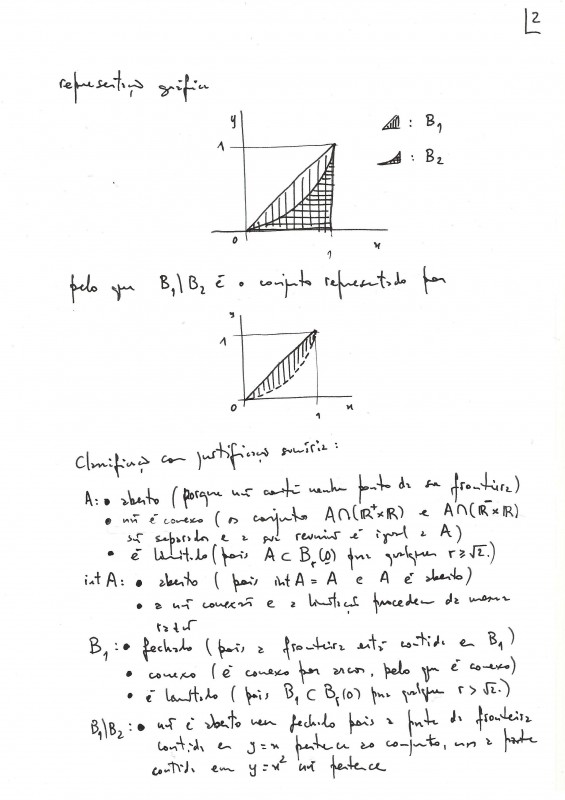 2
representação gráfica
y
1
0
1
x
: B₁
: B₂
pelo que B₁\B₂ é o conjunto representado por
y
1
0
1
x
Classificação com justificação sumária:
A: • aberto (porque não contém nenhum ponto da sua fronteira)
• não é conexo (os conjuntos A∩(ℝ⁺×ℝ) e A∩(ℝ⁻×ℝ)
são separados e a sua reunião é igual a A)
• é limitado (pois A ⊂ Bᵣ(0) para qualquer r ≥ √2.)
int A: • aberto (pois int A = A e A é aberto)
• a não conexão e a limitação procedem da mesma
razão
B₁: • fechado (pois a fronteira está contida em B₁)
• conexo (é conexo por arcos, pelo que é conexo)
• é limitado (pois B₁ ⊂ Bᵣ(0) para qualquer r > √2.)
B₁\B₂: • não é aberto nem fechado pois a parte da fronteira
contida em y = x pertence ao conjunto, mas a parte
contida em y = x² não pertence